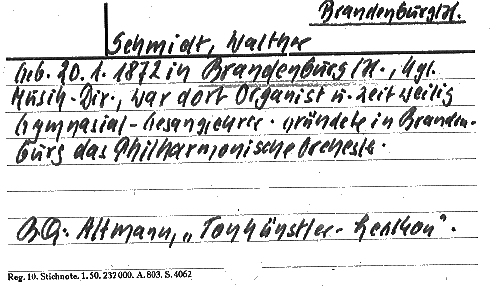 Brandenburg/H.
Schmidt, Walther
Geb. 20.1.1872 in Brandenburg/H., Kgl.
Musik-Dir., war dort Organist u. zeitweilig
Gymnasial-Gesanglehrer. gründete in Branden-
burg das Philharmonische Orchester.
BQ. Altmann, „Tonkünstler-Lexikon".
Reg. 10. Stichnote. 1. 50. 232000. A. 803. S. 4062